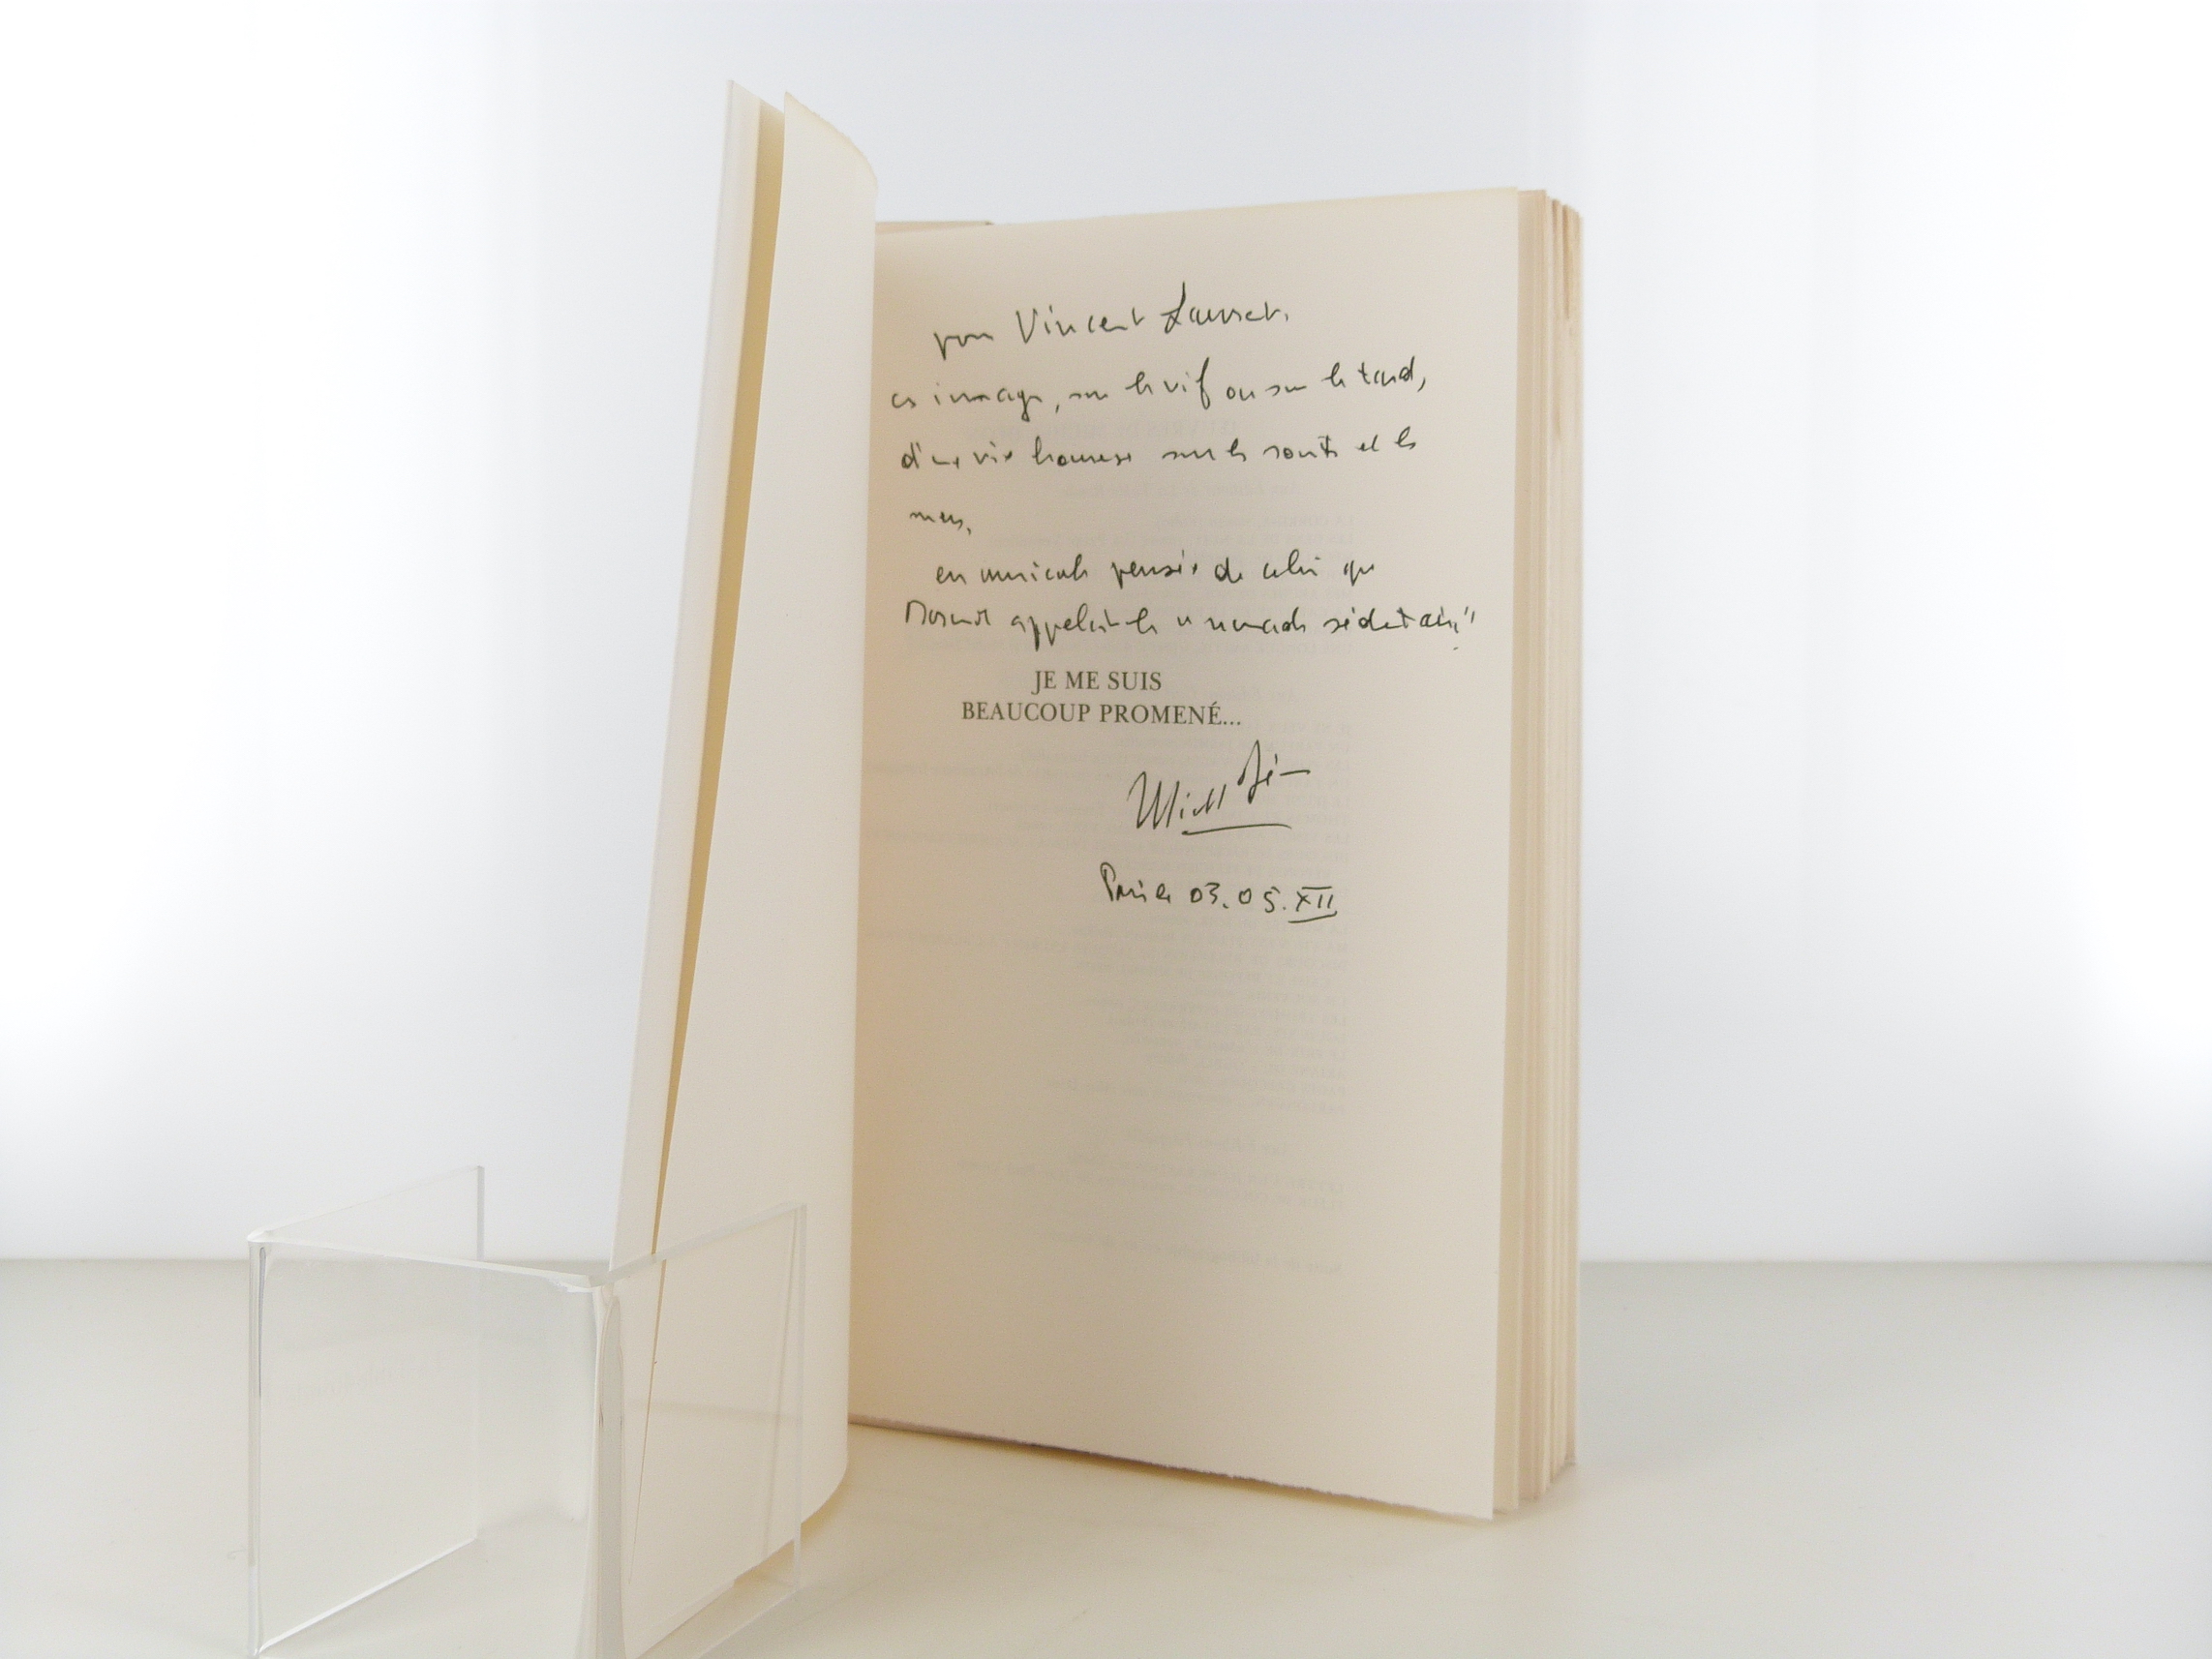 pour Vincent Lausset.
ces images, sur le vif ou sur le tard,
d'une vie heureuse sur les routes et les
mers,
en amicale pensée de celui que
appelait le "nomade sédentaire"
JE ME SUIS
BEAUCOUP PROMENÉ...
Michel Déon
Paris le 03.05.XII